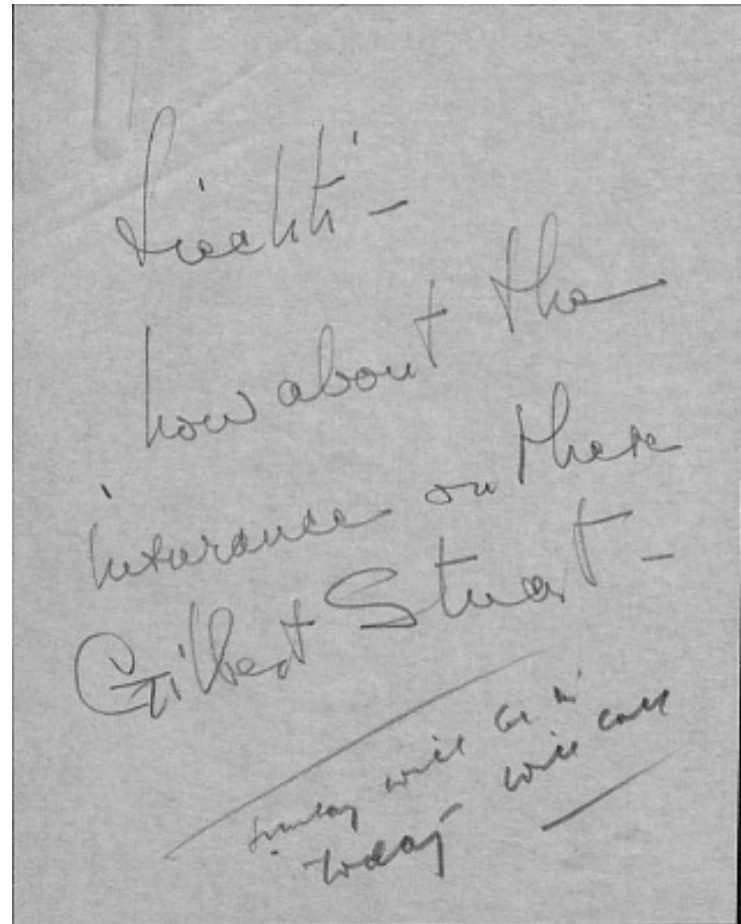 how about the
insurance on these
Gilbert Stuart -
will be in
today will call